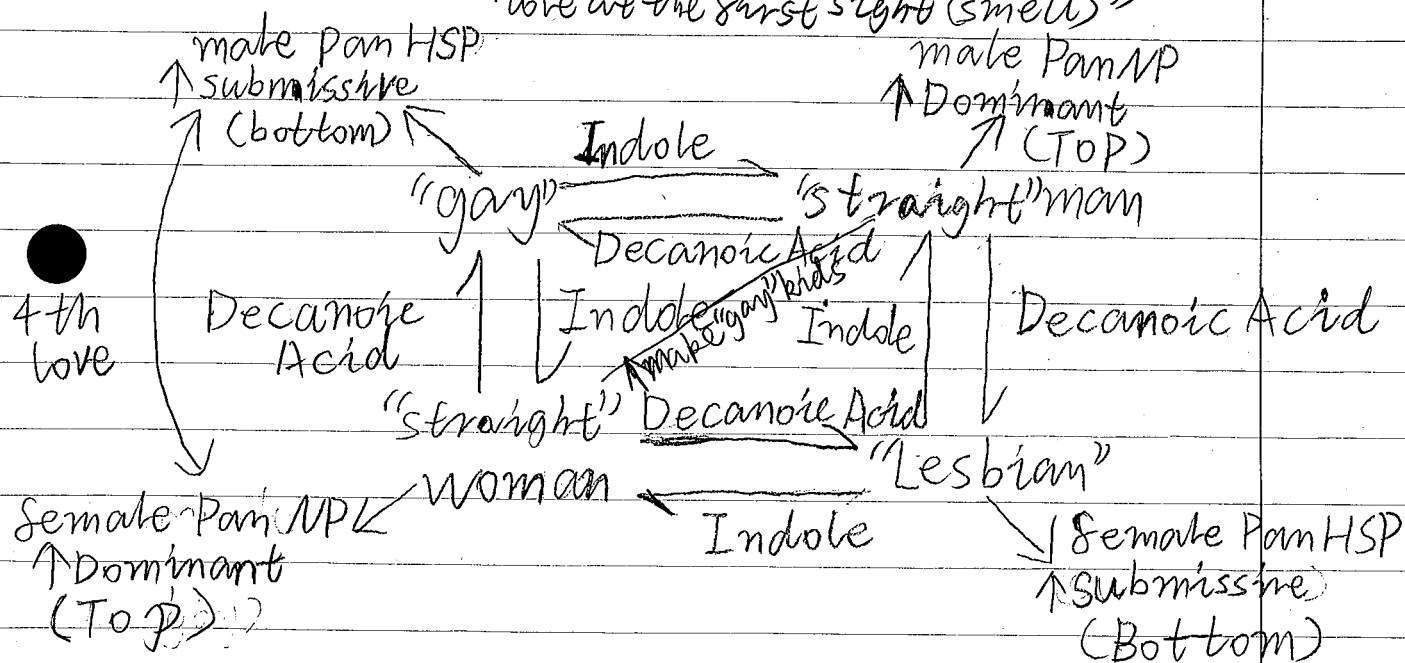 "love at the first sight (smell)"
male Pan HSP
↑ submissive
(bottom)
male Pan NP
↑ Dominant
(TOP)
Indole
"gay"
"straight" man
Decanoic Acid
4th
love
Decanoic
Acid
Indole
↑make "gay" kids
Indole
Decanoic Acid
"straight"
woman
Decanoic Acid
"Lesbian"
Indole
female Pan NP
↑Dominant
(Top)
female Pan HSP
↑Submissive
(Bottom)